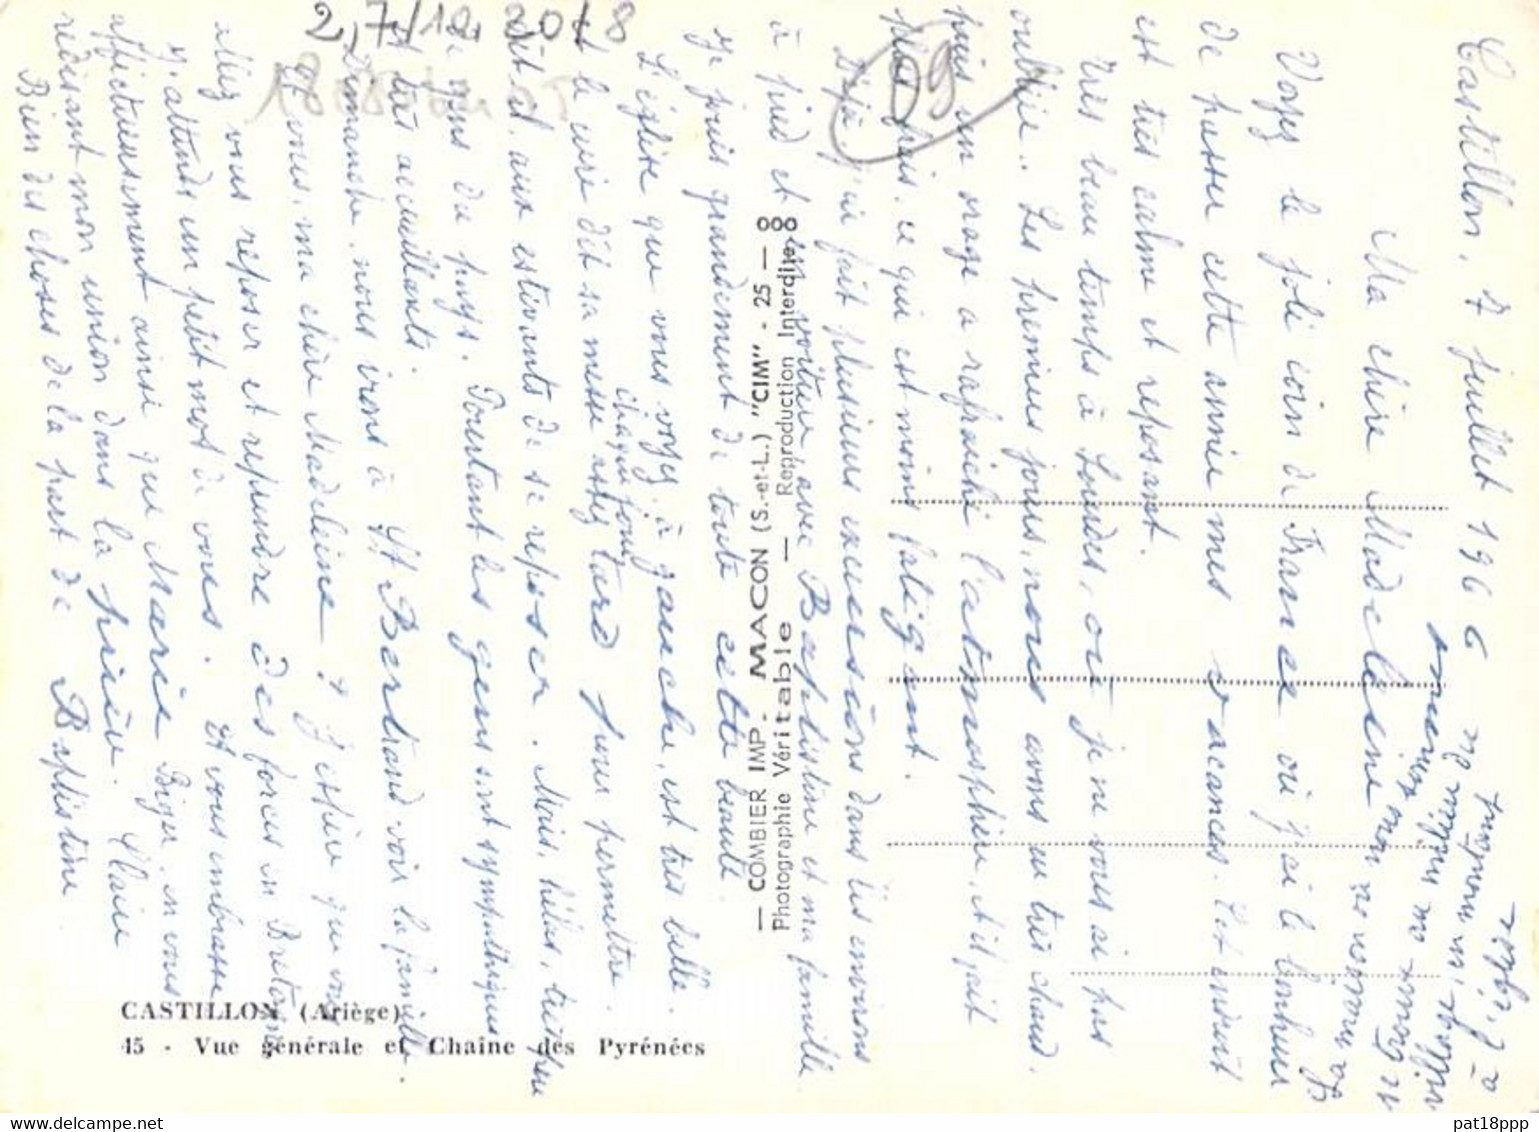 Castillon, 7 juillet 1966
Ma chère Madeleine
Voyez le joli coin de France où j'ai le bonheur
de passer cette année mes vacances. Cet endroit
est très calme et reposant.
Très beau temps à Lourdes, où je ne vous ai pas
oubliée. Les premiers jours, nous avons eu très chaud
puis un orage a rafraîchi l'atmosphère, et il fait
plus frais, ce qui est moins fatigant.
Déjà j'ai fait plusieurs excursions dans les environs
à pied et en voiture avec Baptistine et ma famille.
Je jouis grandement de toute cette beauté.
L'église que vous voyez à gauche, est très belle.
et le curé dit sa messe chaque jour assez tard pour permettre
aux estivants de se reposer. Mais, hélas, très peu
gens du pays. Pourtant les gens sont sympathiques
et très accueillants.
Dimanche, nous irons à St Bertrand voir la famille.
Et vous, ma chère Madeleine ? J'espère que vous
allez vous reposer et reprendre des forces en Bretagne
J'attends un petit mot de vous. Et vous embrasse
affectueusement ainsi que Marie Biger, en vous
redisant mon union dans la prière. Claire
Bien des choses de la part de Baptistine.
2,7/12, 2018
09
— COMBIER IMP. MACON (S.-et-L.) "CIM" - 25 — 8
Photographie Véritable — Reproduction Interdite 8
CASTILLON (Ariège)
45 - Vue générale et Chaîne des Pyrénées
pat18ppp